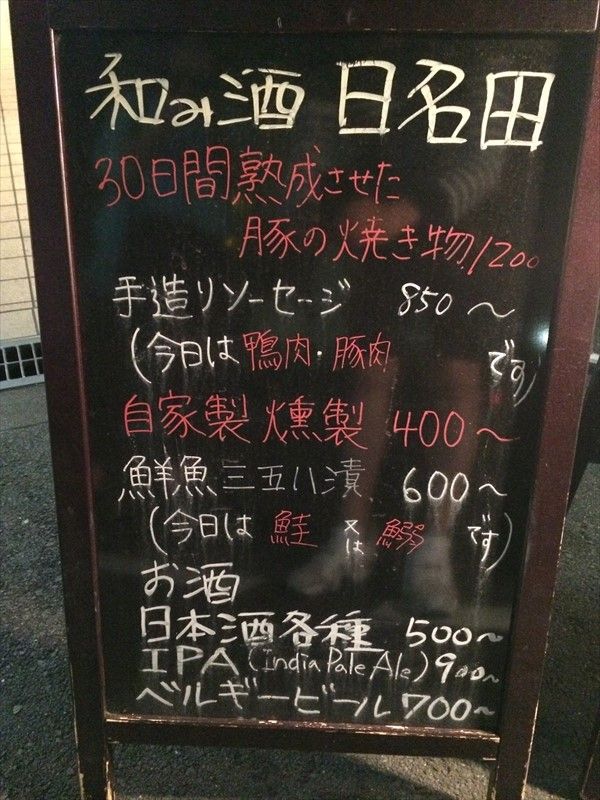 和み酒 日名田
30日間熟成させた
豚の焼き物 1200
手造りソーセージ 850〜
(今日は鴨肉・豚肉です)
自家製 燻製 400〜
鮮魚三五八漬 600〜
(今日は 鮭 又は 鰯 です)
お酒
日本酒各種 500〜
IPA (India Pale Ale) 900〜
ベルギービール 700〜